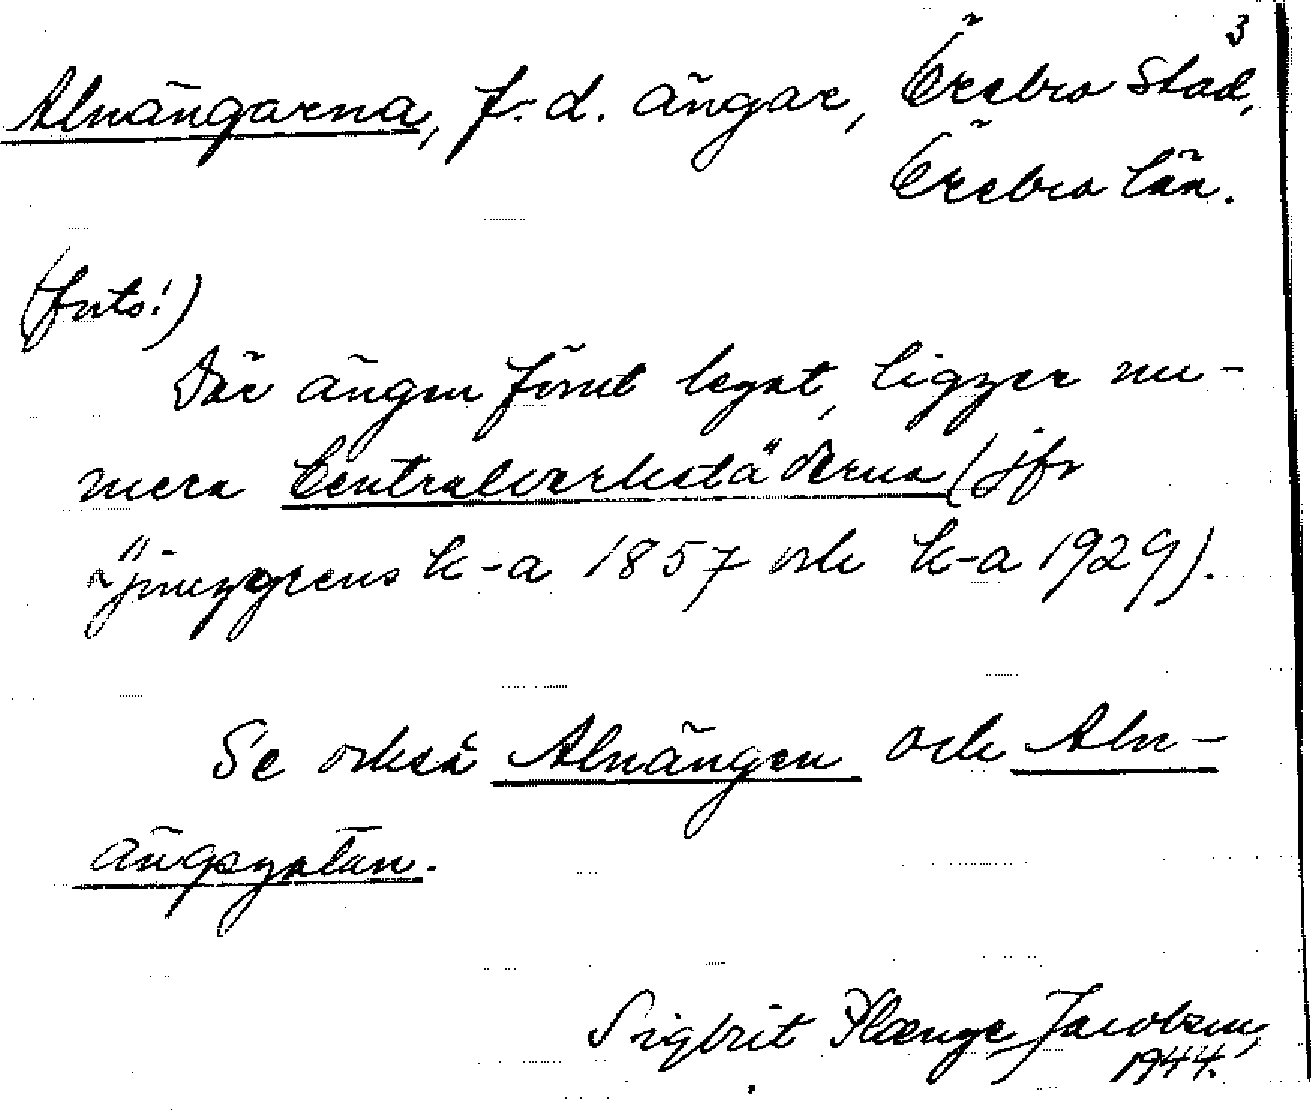 3
Alnängarna, f.d. ängar, Örebro stad,
Örebro län.
(forts.)
Där ängen förut legat, ligger nu-
mera Centralverkstäderna (jfr
Ljunggrens k-a 1857 och k-a 1929).
Se också Alnängen och Aln-
ängsgatan.
Sigbrit Plænge Jacobson,
1944.